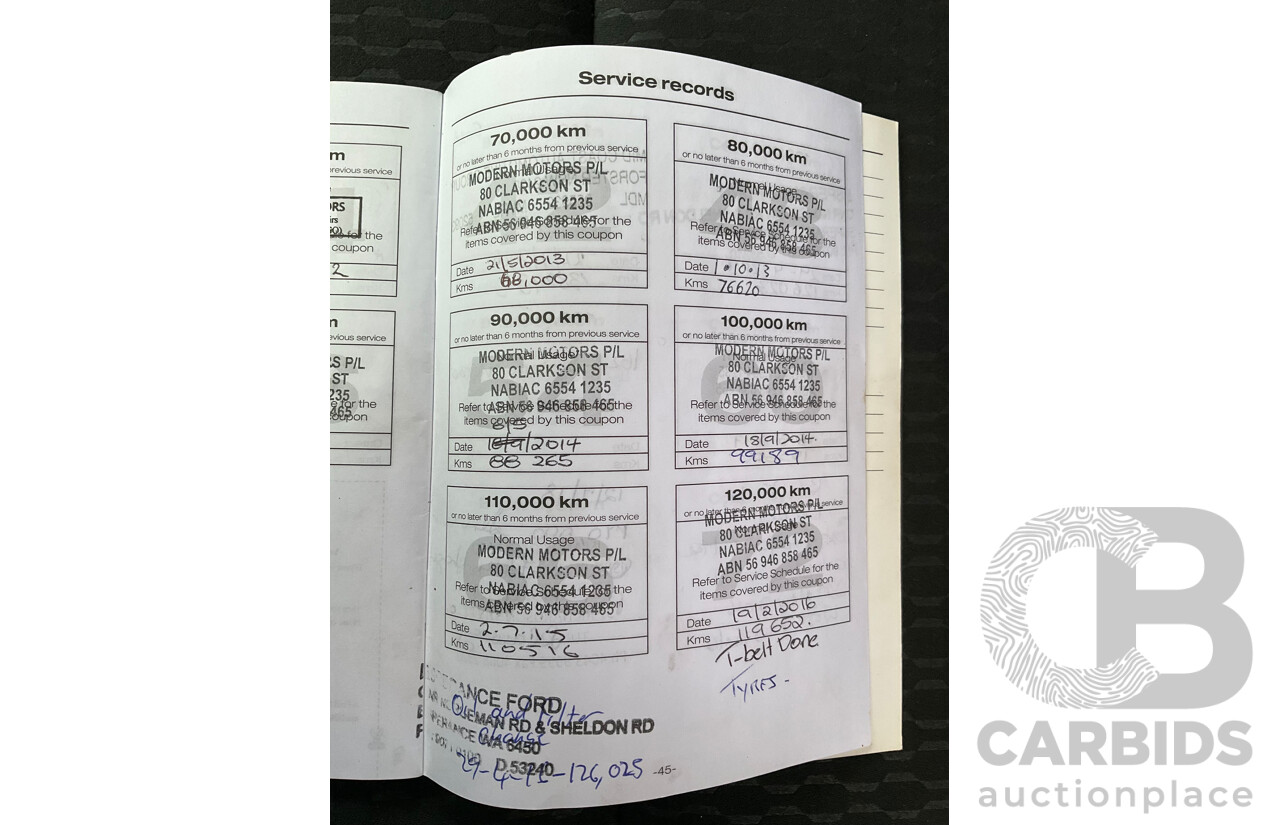 Service records
m
revious service
RS
for the
coupon
2
m
evious service
S P/L
ST
235
465
e for the
oupon
70,000 km
or no later than 6 months from previous service
Normal Usage
MODERN MOTORS P/L
80 CLARKSON ST
NABIAC 6554 1235
ABN 56 946 858 465
Refer to Service Schedule for the
items covered by this coupon
Date 21/5/2013
Kms 68,000
80,000 km
or no later than 6 months from previous service
Normal Usage
MODERN MOTORS P/L
80 CLARKSON ST
NABIAC 6554 1235
ABN 56 946 858 465
Refer to Service Schedule for the
items covered by this coupon
Date 1.10.13
Kms 76620
90,000 km
or no later than 6 months from previous service
Normal Usage
MODERN MOTORS P/L
80 CLARKSON ST
NABIAC 6554 1235
ABN 56 946 858 465
Refer to Service Schedule for the
items covered by this coupon
6/5
Date /2014
Kms 88 265
100,000 km
or no later than 6 months from previous service
Normal Usage
MODERN MOTORS P/L
80 CLARKSON ST
NABIAC 6554 1235
ABN 56 946 858 465
Refer to Service Schedule for the
items covered by this coupon
Date 18/9/2014.
Kms 99189
110,000 km
or no later than 6 months from previous service
Normal Usage
MODERN MOTORS P/L
80 CLARKSON ST
NABIAC 6554 1235
ABN 56 946 858 465
Refer to Service Schedule for the
items covered by this coupon
Date 2.7.15
Kms 110516
120,000 km
or no later than 6 months from previous service
Normal Usage
MODERN MOTORS P/L
80 CLARKSON ST
NABIAC 6554 1235
ABN 56 946 858 465
Refer to Service Schedule for the
items covered by this coupon
Date 19/2/2016
Kms 119652.
T-belt Done
TYRES -
ANCE FORD
Oil and Filter
EMAN RD & SHELDON RD
Change
ANCE WA 6450
D.53240
126,025
-45-
CARBIDS
auctionplace